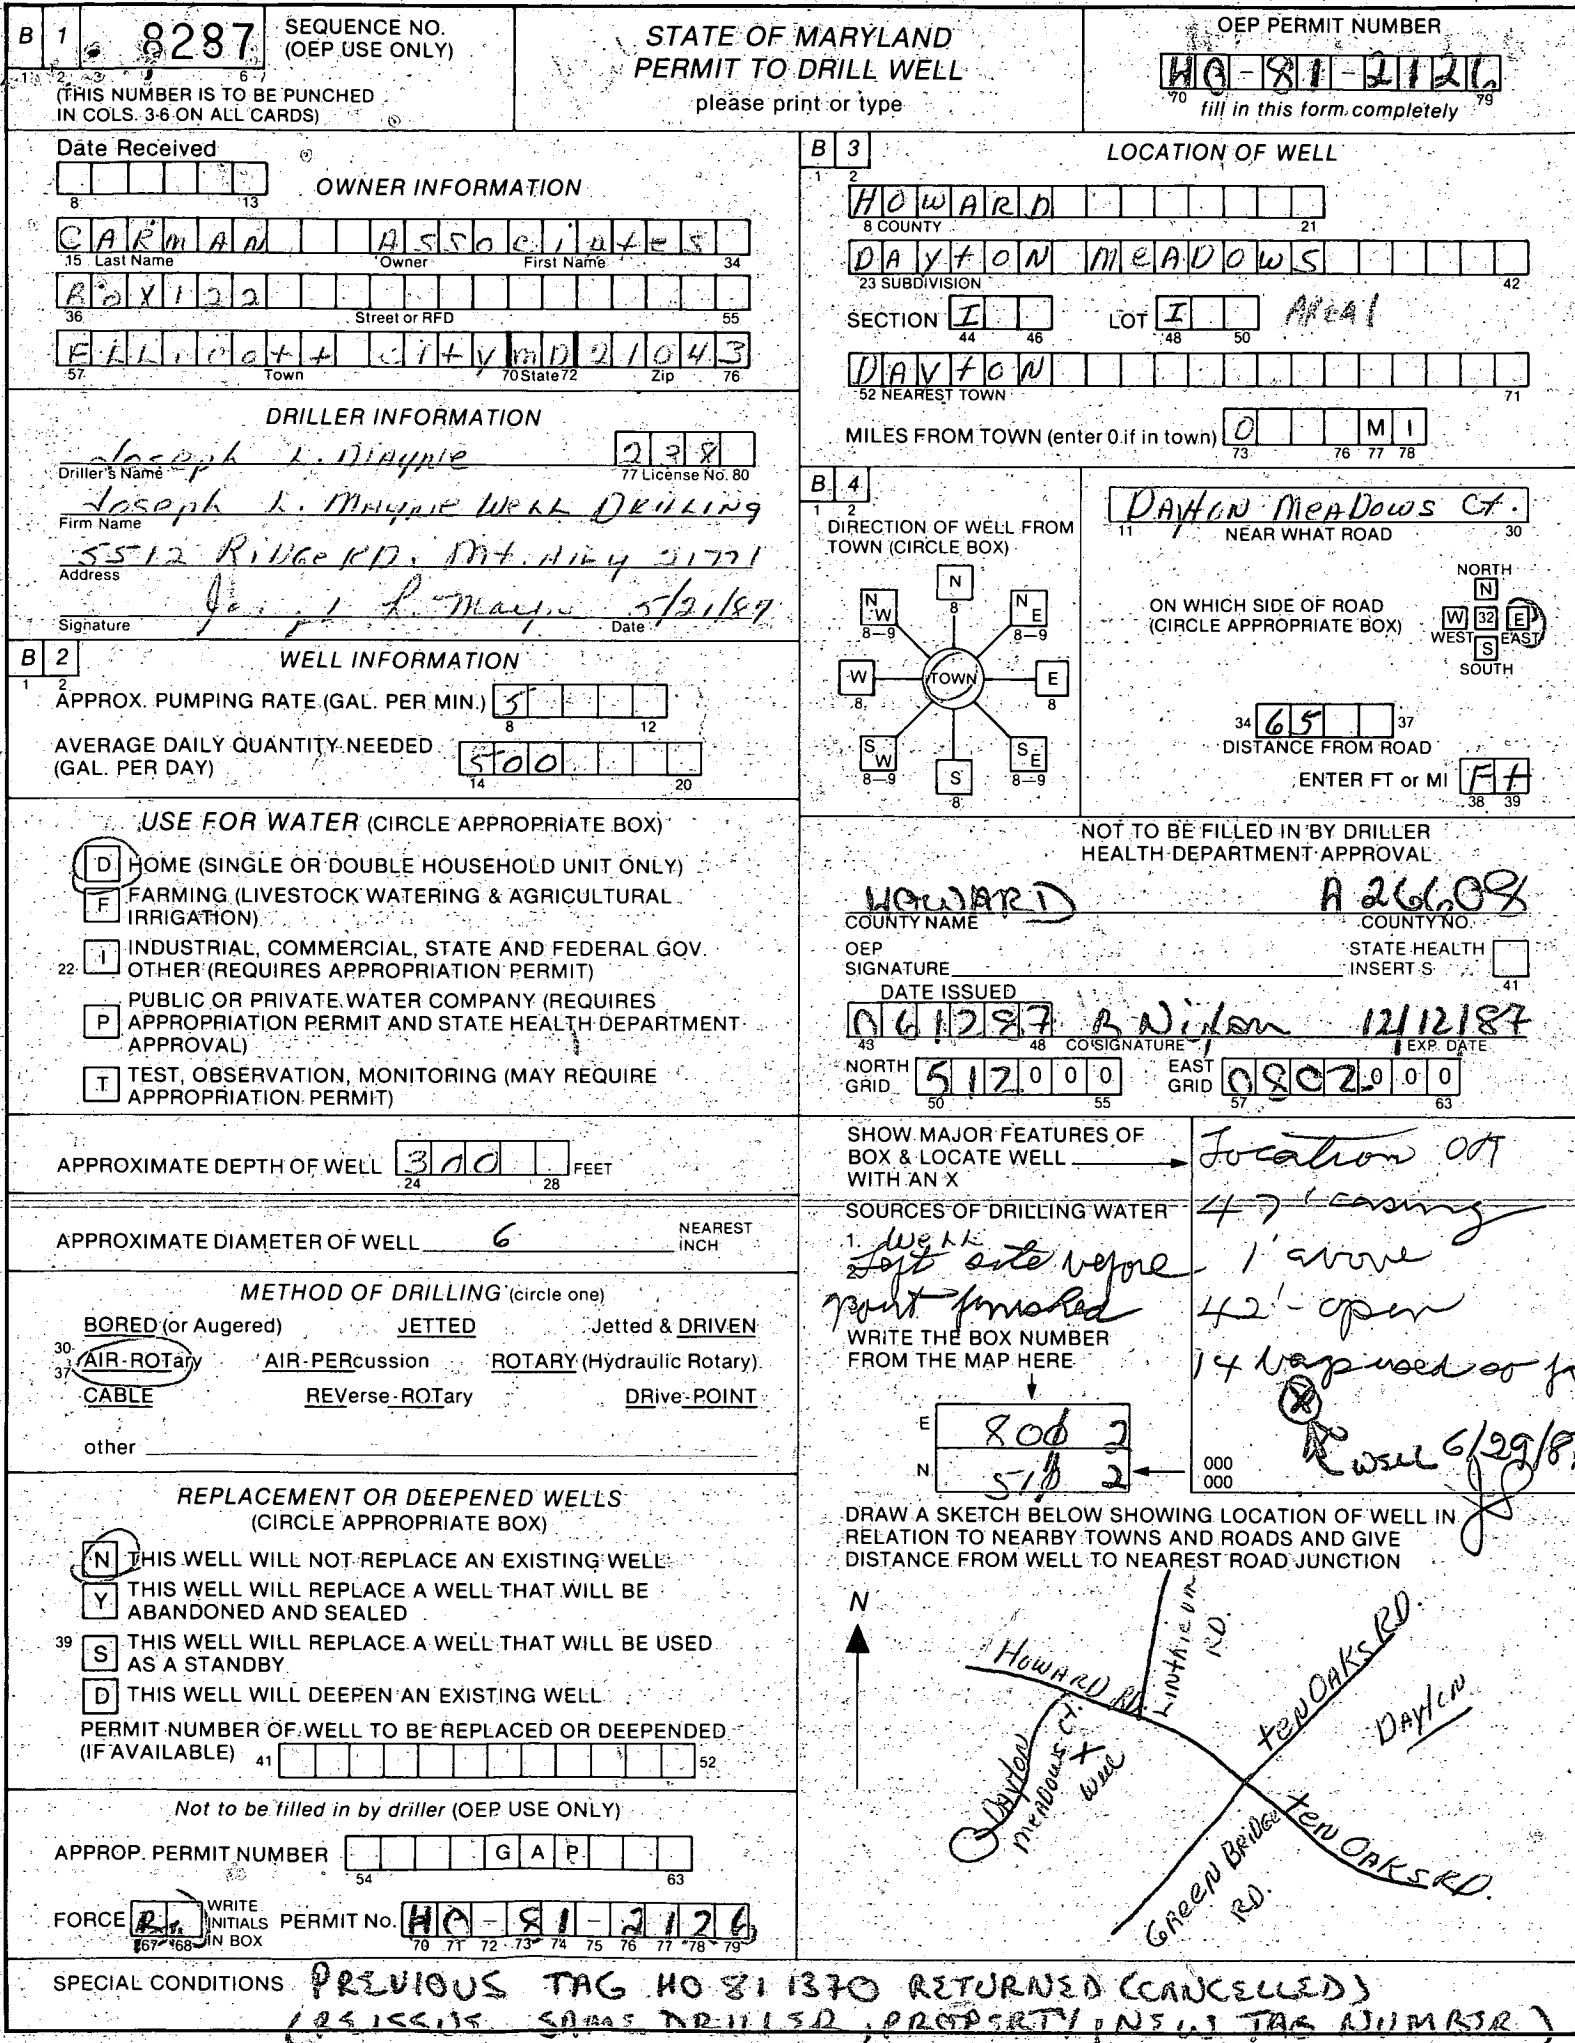 B 1 8287 SEQUENCE NO. (OEP USE ONLY)
1 2 3 6
(THIS NUMBER IS TO BE PUNCHED
IN COLS. 3-6 ON ALL CARDS)
STATE OF MARYLAND
PERMIT TO DRILL WELL
please print or type
OEP PERMIT NUMBER
HO-81-2126
70 79
fill in this form completely
Date Received
8 13
OWNER INFORMATION
CARMAN Associates
15 Last Name Owner First Name 34
Box 122
36 Street or RFD 55
ELLicott city MD 21043
57 Town 70 State 72 Zip 76
DRILLER INFORMATION
Joseph L. Mayne 238
Driller's Name 77 License No. 80
Joseph L. Mayne Well DRILLING
Firm Name
5512 Ridge RD. Mt. Airy 21771
Address
L. Mayne 5/21/87
Signature Date
B 2 WELL INFORMATION
1 2
APPROX. PUMPING RATE (GAL. PER MIN.) 5
8 12
AVERAGE DAILY QUANTITY NEEDED
(GAL. PER DAY) 500
14 20
USE FOR WATER (CIRCLE APPROPRIATE BOX)
D HOME (SINGLE OR DOUBLE HOUSEHOLD UNIT ONLY)
F FARMING (LIVESTOCK WATERING & AGRICULTURAL
IRRIGATION)
22 I INDUSTRIAL, COMMERCIAL, STATE AND FEDERAL GOV.
OTHER (REQUIRES APPROPRIATION PERMIT)
P PUBLIC OR PRIVATE WATER COMPANY (REQUIRES
APPROPRIATION PERMIT AND STATE HEALTH DEPARTMENT
APPROVAL)
T TEST, OBSERVATION, MONITORING (MAY REQUIRE
APPROPRIATION PERMIT)
APPROXIMATE DEPTH OF WELL 300 FEET
24 28
APPROXIMATE DIAMETER OF WELL 6 NEAREST
INCH
METHOD OF DRILLING (circle one)
BORED (or Augered) JETTED Jetted & DRIVEN
30-37 AIR-ROTary AIR-PERcussion ROTARY (Hydraulic Rotary)
CABLE REVerse-ROTary DRive-POINT
other
REPLACEMENT OR DEEPENED WELLS
(CIRCLE APPROPRIATE BOX)
N THIS WELL WILL NOT REPLACE AN EXISTING WELL
Y THIS WELL WILL REPLACE A WELL THAT WILL BE
ABANDONED AND SEALED
39 S THIS WELL WILL REPLACE A WELL THAT WILL BE USED
AS A STANDBY
D THIS WELL WILL DEEPEN AN EXISTING WELL
PERMIT NUMBER OF WELL TO BE REPLACED OR DEEPENED
(IF AVAILABLE) 41 52
Not to be filled in by driller (OEP USE ONLY)
APPROP. PERMIT NUMBER GAP
54 63
FORCE WRITE
INITIALS
IN BOX PERMIT No. HO-81-2126
67 68 70 71 72 73 74 75 76 77 78 79
B 3 LOCATION OF WELL
1 2
HOWARD
8 COUNTY 21
DAytON MeADOWS
23 SUBDIVISION 42
SECTION I LOT I AREA 1
44 46 48 50
DAytON
52 NEAREST TOWN 71
MILES FROM TOWN (enter 0 if in town) 0 MI
73 76 77 78
B 4
1 2
DIRECTION OF WELL FROM
TOWN (CIRCLE BOX)
N
8
NW NE
8-9 8-9
W TOWN E
8 8
SW SE
8-9 8-9
S
8
DAytON MeADOWS Ct.
11 NEAR WHAT ROAD 30
ON WHICH SIDE OF ROAD
(CIRCLE APPROPRIATE BOX)
NORTH
N
W 32 E
WEST EAST
S
SOUTH
34 65 37
DISTANCE FROM ROAD
ENTER FT or MI Ft
38 39
NOT TO BE FILLED IN BY DRILLER
HEALTH DEPARTMENT APPROVAL
HOWARD A 26608
COUNTY NAME COUNTY NO.
OEP
SIGNATURE STATE HEALTH
INSERT S
41
DATE ISSUED
061287 B Nixon 12/12/87
43 48 CO SIGNATURE EXP. DATE
NORTH
GRID 512000 EAST
GRID 0802000
50 55 57 63
SHOW MAJOR FEATURES OF
BOX & LOCATE WELL
WITH AN X
Location OK
47' casing
1' above
42' - open
14 bags used
Well 6/29/8
SOURCES OF DRILLING WATER
1. well
2.
Left site before
finished
WRITE THE BOX NUMBER
FROM THE MAP HERE
E 2
N 2
000
000
DRAW A SKETCH BELOW SHOWING LOCATION OF WELL IN
RELATION TO NEARBY TOWNS AND ROADS AND GIVE
DISTANCE FROM WELL TO NEAREST ROAD JUNCTION
N
HOWARD RD.
LINTHICUM RD.
ten OAKS RD.
DAytON
Dayton MeADOWS Ct.
X well
GREEN BRIDGE RD.
ten OAKS RD.
SPECIAL CONDITIONS PREVIOUS TAG HO 81 1370 RETURNED (CANCELLED)
(REISSUE SAME DRILLER, PROPERTY, NEW TAG NUMBER)